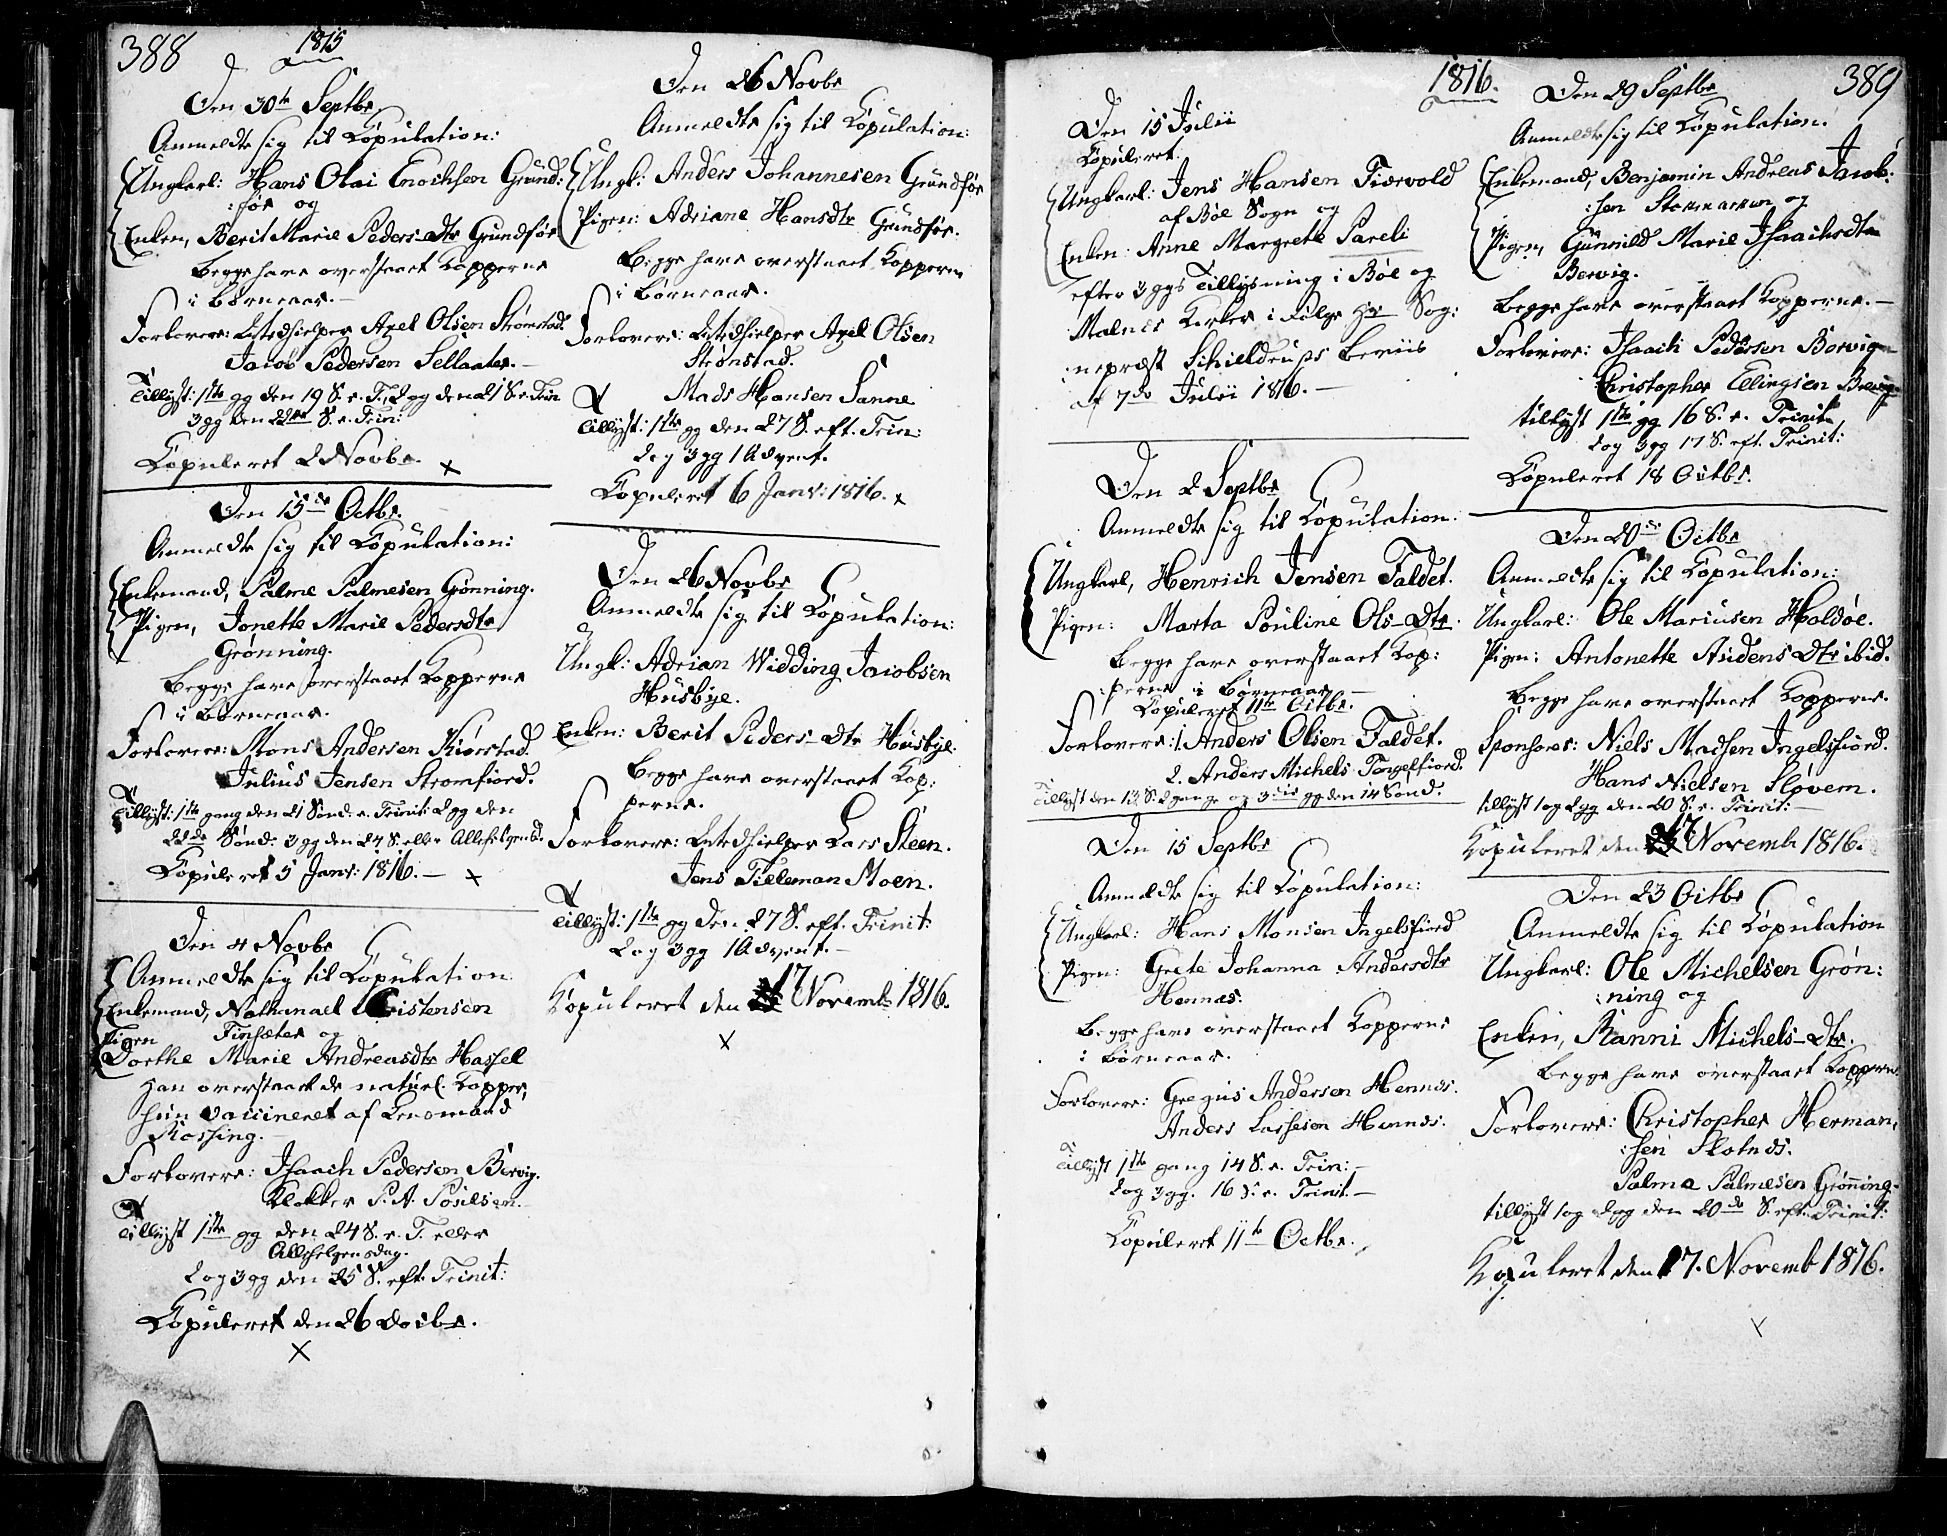 388
1815
Den 30te Septbr
Anmeldte sig til Copulation:
Ungkarl: Hans Olai Enochsen Grund:
:før og
Enken, Berit Marie Peders-dtr Grundfør
Begge have overstaaet Kopperne
i Børneaar.—
Forlovere: Lehnsmand Axel Olsen Strømstad.
Jacob Pedersen Sellaater.—
Tillyst: 1ste gg den 19 S. e. T., 2 og den 21 S. e. Trin
3 gg den 22de S. e. Trin:
Copuleret 2 Novbr. x
Den 15de Octbr.
Anmeldte sig til Copulation:
Enkemand, Palme Palmesen Grønning.
Pigen, Jonette Marie Pedersdtr
Grønning.
Begge have overstaaet Kopperne
i Børneaar.
Forlovere: Mons Andersen Kiørstad.
Julius Jensen Strømfiord.
Tillyst: 1ste gang den 21 Sønd. e. Trinit: 2 gg den
22de Sønd: 3 gg den 24 S. eller Allehelgensd.
Copuleret 5 Janv: 1816.— x
Den 4 Novbr
Anmeldte sig til Copulation
Enkemand, Nathanael Christensen
Finsæter og
Pigen
Dorthe Marie Andreasdtr Hassel
Han overstaaet de naturl. Kopper,
hun vaccineret af Lensmand
Rossing.
Forlovere: Isaach Pedersen Bervig.
Klokker P. A. Poulsen.
Tillyst 1ste gg den 24 S. e. T. eller
Allehelgensdag.
2 og 3 gg den 25 S. eft. Trinit:
Copuleret den 26 Decbr.
x
Den 26 Novbr
Anmeldte sig til Copulation:
Ungk: Anders Johannesen Grundfør
Pigen: Adriane Hansdtr Grundfør.
Begge have overstaaet Kopperne
i Børneaar.
Forlovere: Axel Olsen
Strømstad.
Mads Hansen Sanne
Tillyst: 1ste gg den 27 S. eft. Trin:
2 og 3 gg 1 Advent.
Copuleret 6 Janv: 1816. x
Den 26 Novbr
Anmeldte sig til Copulation:
Ungk: Adrian Widding Jacobsen
Husbye.
Enken: Berit Peders-dtr Husbye.
Begge have overstaaet Kop:
perne.
Forlovere: Lars Steen.
Jens Tilleman Moen.
Tillyst: 1ste gg den 27 S. eft. Trinit:
2 og 3 gg 1 Advent.—
Kopuleret den 17 Novemb 1816.
x
1816.
389
Den 15 Julii
Copuleret:
Ungkarl: Jens Hansen Tiørvold
af Bøe Sogn og
Enken: Anne Margrethe Pareli
efter 3 ggs Tillysning i Bøe og
Malnes Kirker i Følge Hr Sog:
:nepræst Schieldrups Beviis
af 7de Julii 1816.—
Den 2 Septbr
Anmeldte sig til Copulation:
Ungkarl, Henrich Jensen Faldet.
Pigen: Marta Pouline Ols-Dtr.
Begge have overstaaet Kop:
:perne i Børneaar.—
Copuleret 11te Octbr.
Forlovere: 1. Anders Olsen Faldet.
2. Anders Michels Tengelfiord.
Tillyst den 13 S. 2 gange og 3die gg den 14 Sønd.
Den 15 Septbr
Anmeldte sig til Copulation:
Ungkarl: Hans Monsen Ingelsfiord
Pigen: Grete Johanna Andersdtr
Hennes.
Begge have overstaaet Kopperne
i Børneaar.
Forlovere: Gregus Andersen Hennes.
Anders Lassesen Hennes.
Tillyst 1ste gang 14 S. e. Trin:—
2 og 3 gg. 16 S. e. Trinit.—
Copuleret 11te Octbr.
Den 29 Septbr
Anmeldte sig til Copulation.
Enkemand, Benjamin Andreas Jacob:
:sen Stokmarkun og
Pigen, Gunnild Marie Isaachsdtr
Bervig.
Begge have overstaaet Kopperne.—
Forlovere: Isaach Pedersen Borvig
Christopher Ellingsen Bervig
tillyst 1ste gg 16 S. e. Trinit.
2 og 3 gg 17 S. eft. Trinit:
Copuleret 18 Octbr.
Den 20de Octbr
Anmeldte sig til Copulation:
Ungkarl: Ole Mariusen Holdøe.
Pigen: Antonette Audens Dtr ibid.
Begge have overstaaet Kopperne.
Sponsores: Niels Madsen Ingelsfiord.
Hans Nielsen Sløvern.
tillyst 1 og 2 gg den 20 S. e. Trinit:—
Kopuleret den 17 Novemb 1816.
Den 23 Octbr
Anmeldte sig til Copulation
Ungkarl: Ole Michelsen Grøn:
:ning og
Enken, Ranni Michels-Dtr.
Begge have overstaaet Kopperne
Forlovere: Christopher Herman:
:sen Slotnes.
Palma Palmesen Grønning
tillyst 1 og 2 gg den 20de S. eft. Trinit:
Kopuleret den 17. Novemb 1816.
x